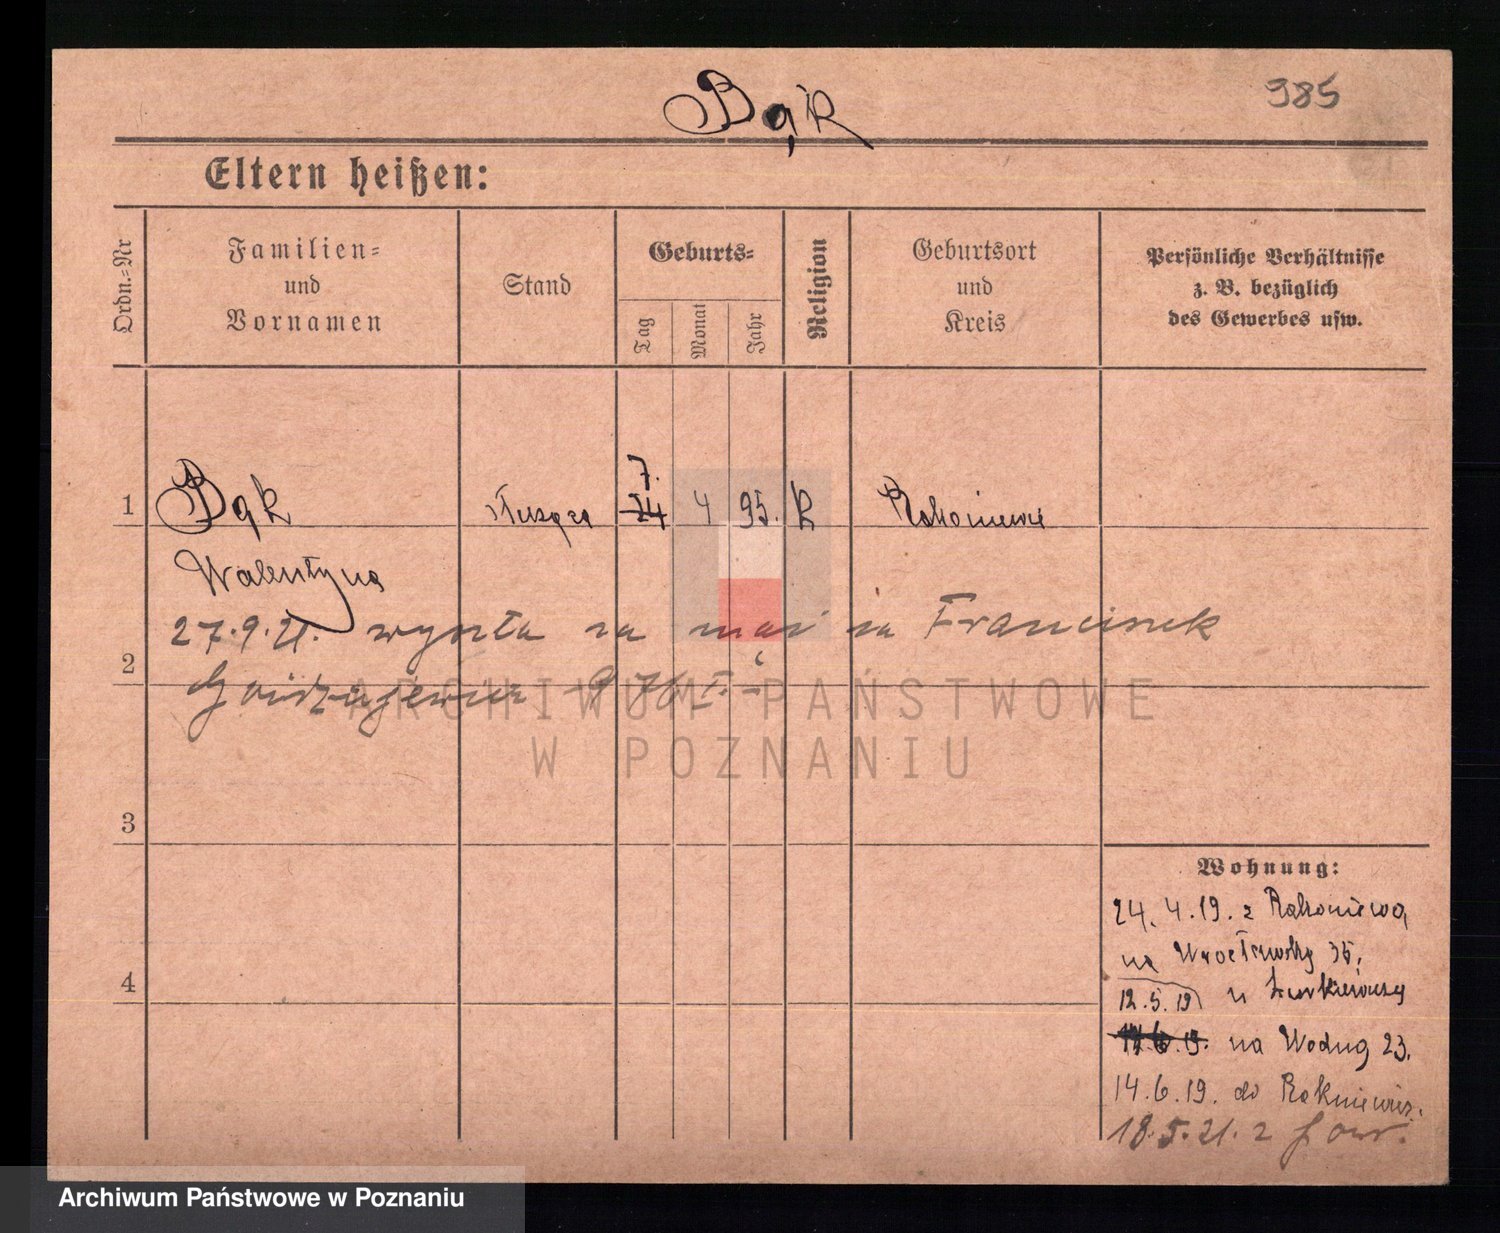 Bąk
985
Eltern heißen:
Ordn.=Nr
Familien=
und
Vornamen
Stand
Geburts=
Tag
Monat
Jahr
Religion
Geburtsort
und
Kreis
Persönliche Verhältnisse
z. B. bezüglich
des Gewerbes usw.
7.
1 Bąk służąca 24 4 95. K Rakoniewice
Walentyna
27.9.21. wyszła za mąż za Franciszek
2
ARCHIWUM PAŃSTWOWE
W POZNANIU
3
Wohnung:
24. 4. 19. z Rakoniewic
na Wrocławską 35,
4
12.5.19 u
na Wodną 23.
14.6.19. do Rakoniewic.
18.5.21. z
Archiwum Państwowe w Poznaniu